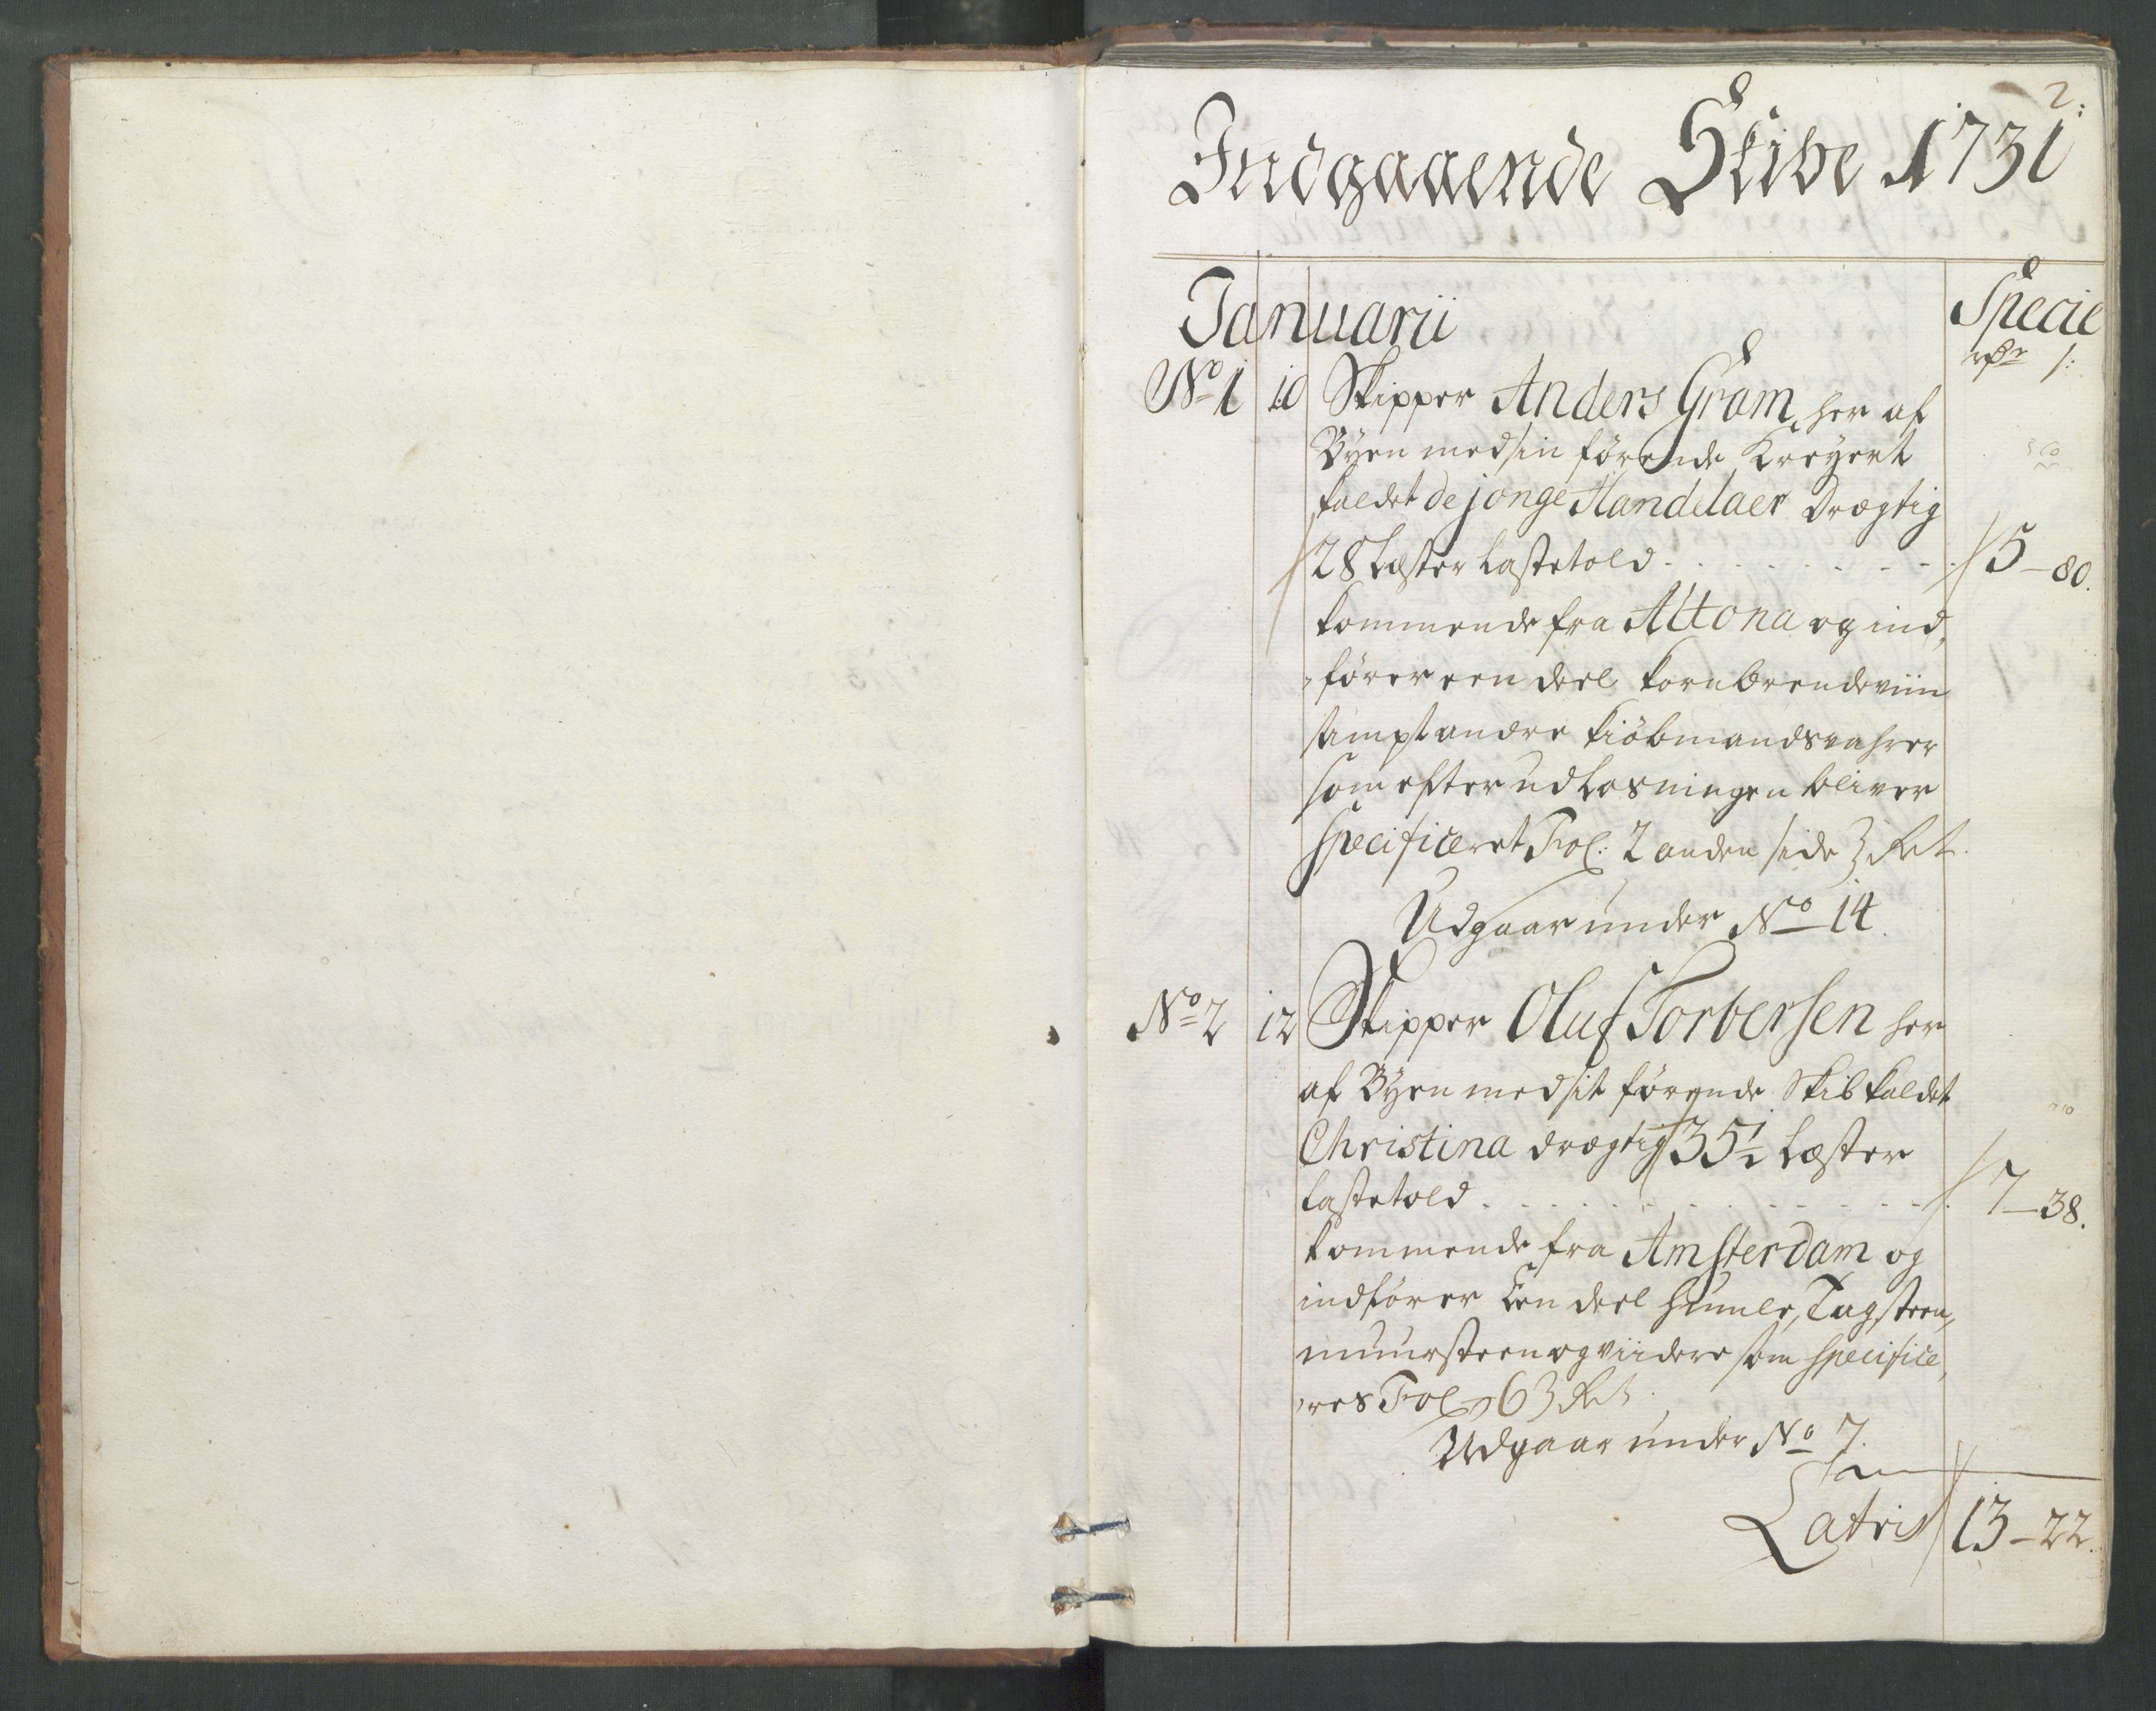 2:
Indgaaende Skibe 1731
Januarii
Specie
rdr s:
No 1 10 Skipper Anders Gram, her af
Byen med sin førende Kreyert
kaldet de jonge Handelaer drægtig
28 Læster Lastetold . . . . . . . 5-80.
kommende fra Altona og ind,
fører een deel Kornbrendeviin
sampt andre Kiøbmandsvahrer
som efter udlosningen bliver
specificeret Fol: 2 anden side
Udgaar under No 14.
No 2 12 Skipper Oluf Torbersen her
af Byen med sit førende Skib kaldet
Christina drægtig 35½ Læster
Lastetold . . . . . . . . . . 7-38.
kommende fra Amsterdam og
indfører Een deel Humle, Tagsteen,
muursteen og viidere som specifice,
res Fol
Udgaar under No 7.
Latris 13-22.